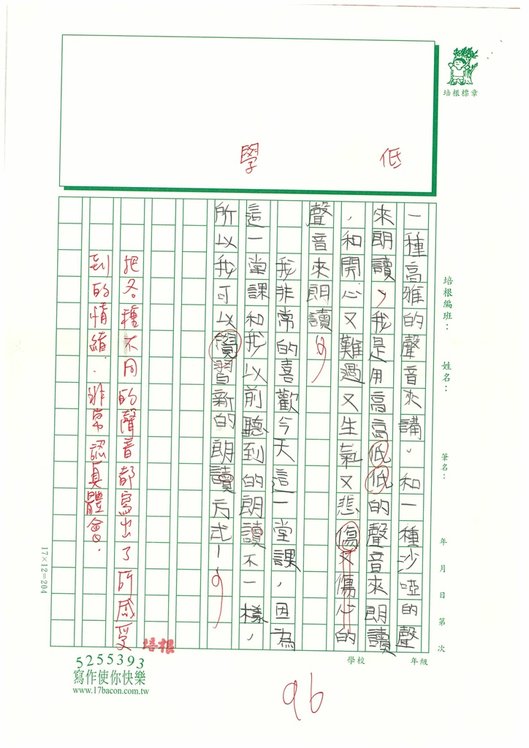 培根標章
低
學
一種高雅的聲音來講，和一種沙啞的聲
來朗讀，我是用高高低低的聲音來朗讀
，和開心又難過又生氣又悲傷又傷心的
聲音來朗讀。
我非常的喜歡今天這一堂課，因為
這一堂課和我以前聽到的朗讀不一樣，
所以我可以學習新的朗讀方式！
把各種不同的聲音都寫出了所感受
到的情緒，非常認真體會。
培根
培根編班：
姓名：
筆名：
年 月 日 第 次
17×12=204
5255393
寫作使你快樂
www.17bacon.com.tw
學校
年級
96